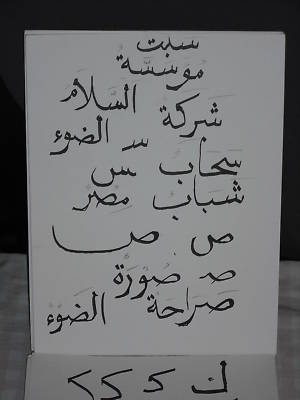 سبت
مؤسسة
شركة السلام
الضوء
سحاب س
شباب مصر
ص صا
ص صورة
صراحة الضوء
ك ك ك ك